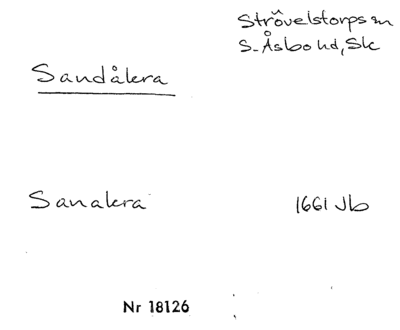 Strövelstorps sn
S. Åsbo hd, Sk
Sandåkra
Sanakra 1661 Jb
Nr 18126